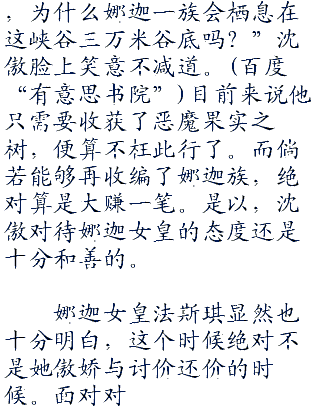 ，为什么娜迦一族会栖息在
这峡谷三万米谷底吗？”沈
傲脸上笑意不减道。(百度
“有意思书院”)目前来说他
只需要收获了恶魔果实之
树，便算不枉此行了。而倘
若能够再收编了娜迦族，绝
对算是大赚一笔。是以，沈
傲对待娜迦女皇的态度还是
十分和善的。
娜迦女皇法斯琪显然也
十分明白，这个时候绝对不
是她傲娇与讨价还价的时
候。面对对